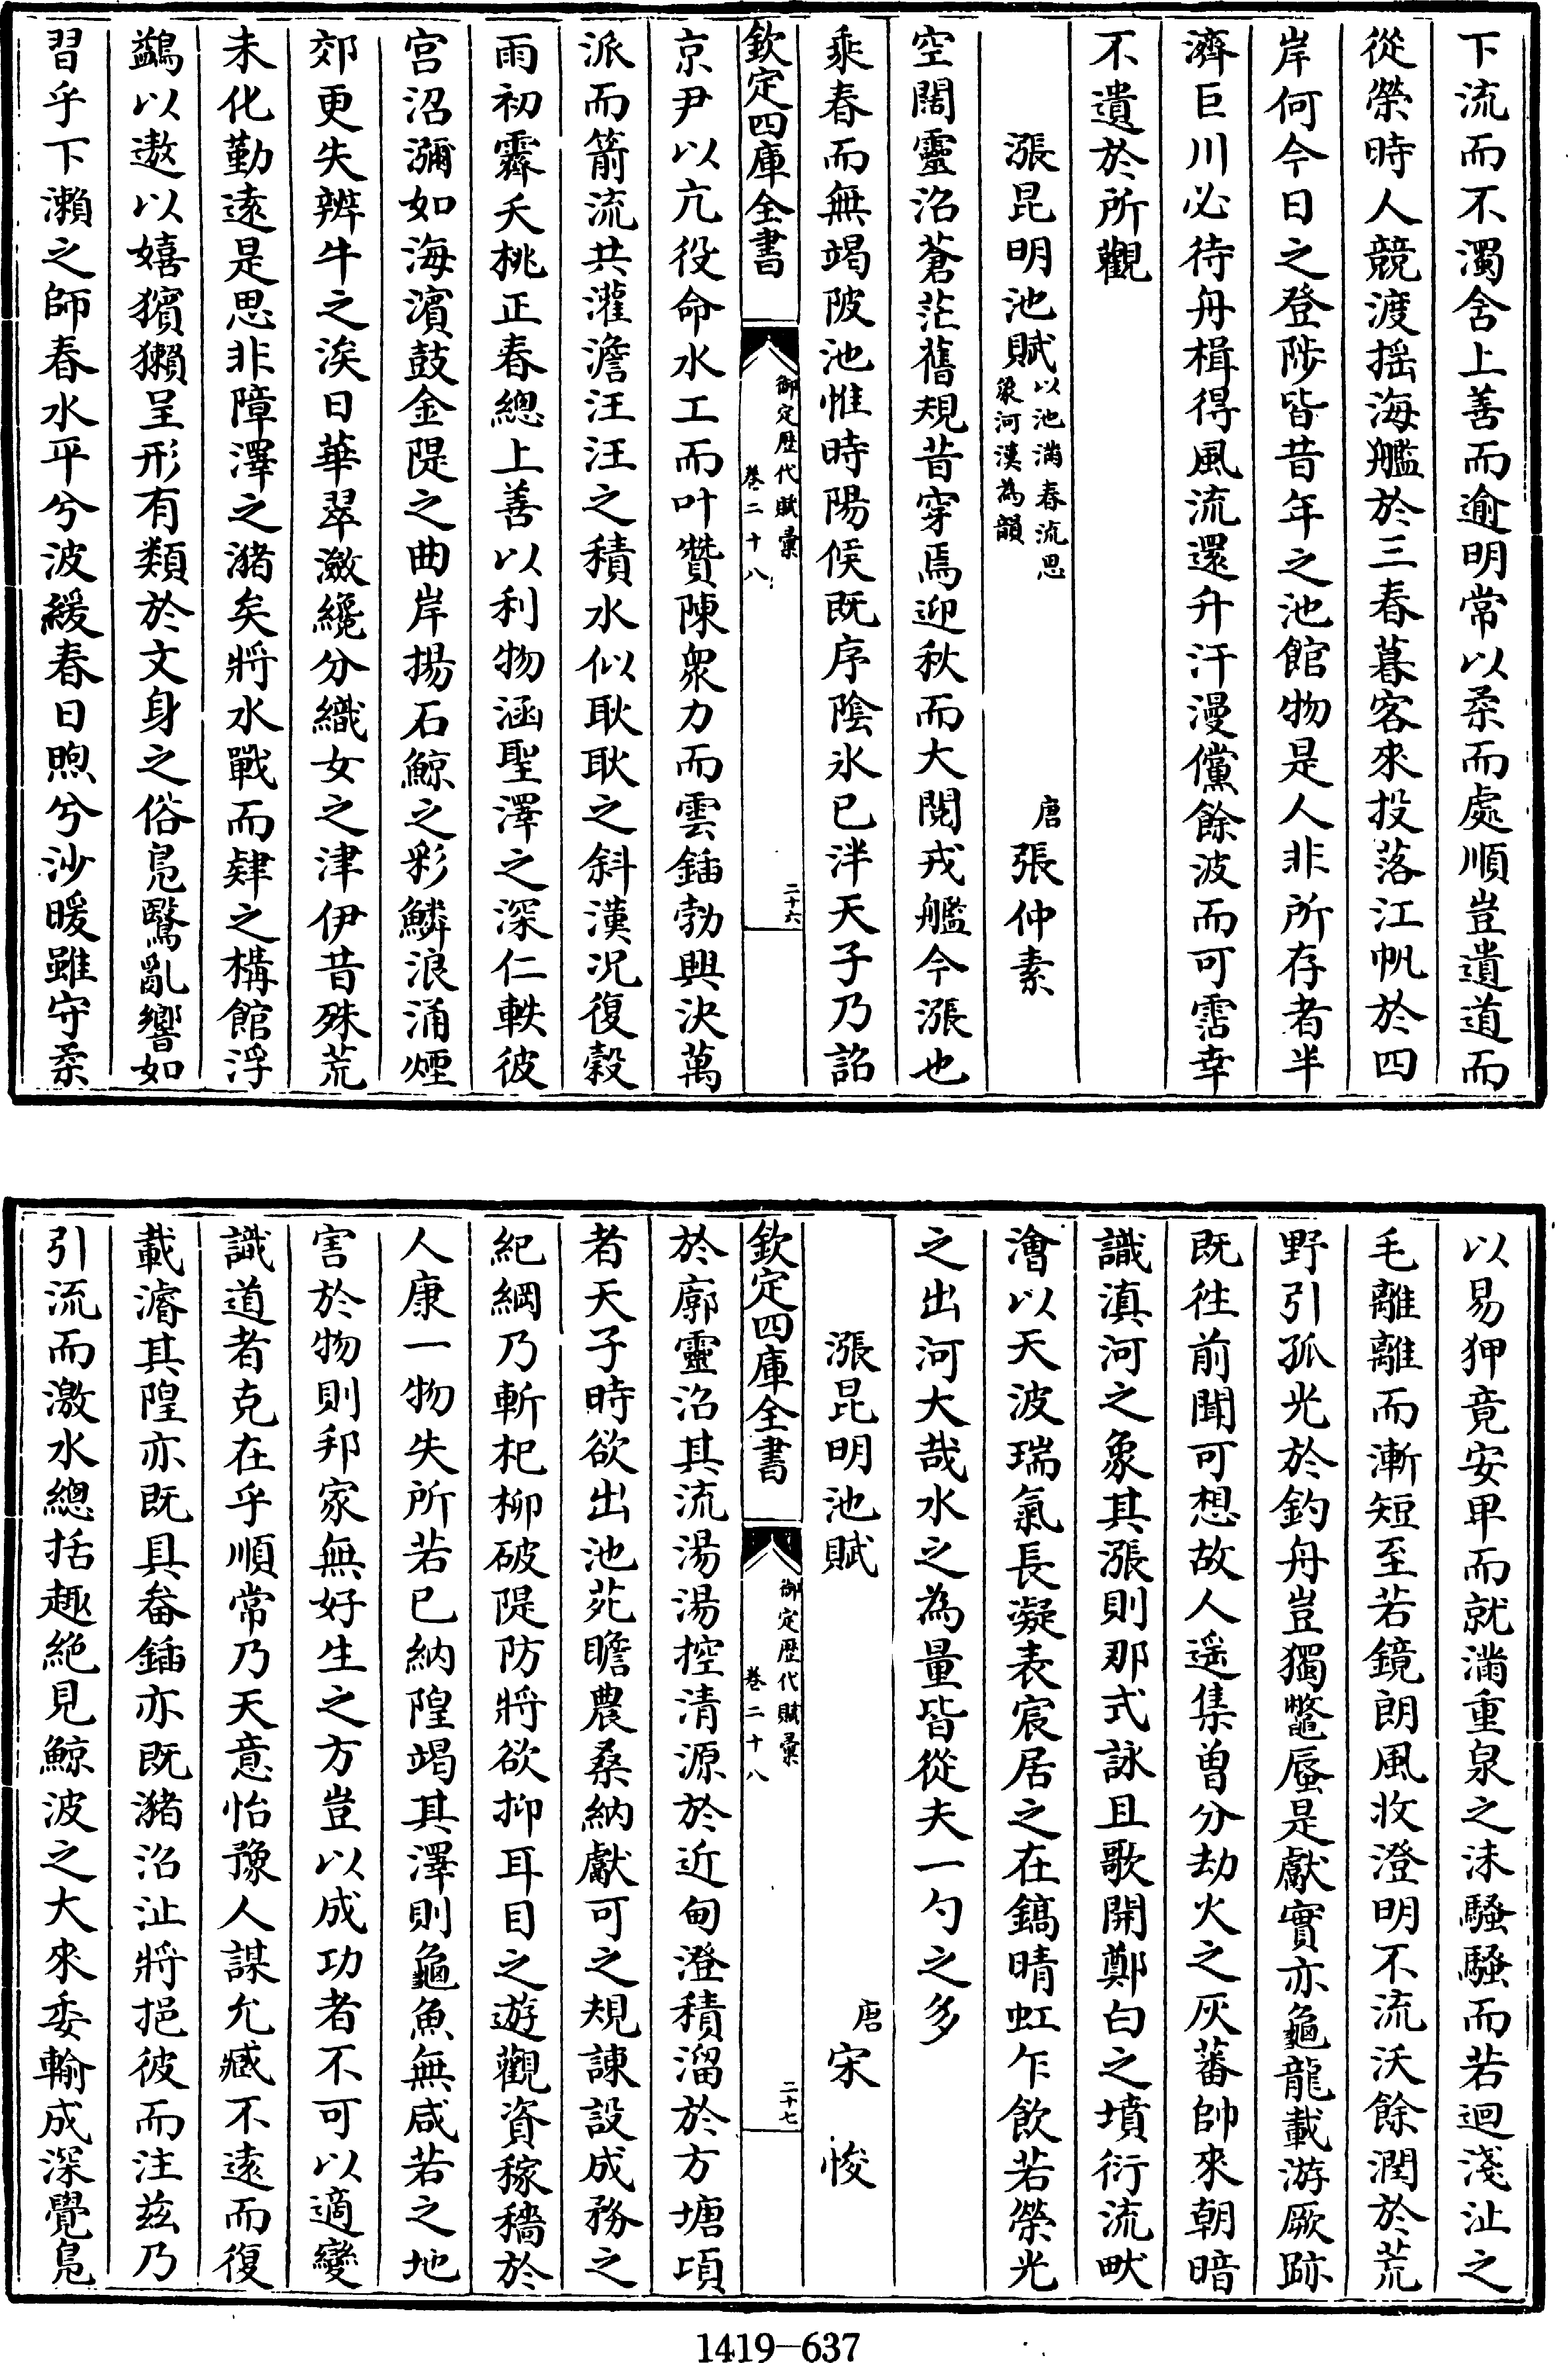 下流而不濁舍上善而逾明常以柔而處順豈遺道而
從榮時人競渡搖海艦於三春暮客來投落江帆於四
岸何今日之登陟皆昔年之池館物是人非所存者半
濟巨川必待舟楫得風流還升汗漫儻餘波而可霑幸
不遺於所觀
漲昆明池賦以池滿春流思象河漢為韻
唐張仲素
空闊靈沼蒼茫舊規昔穿焉迎秋而大閱戎艦今漲也
乘春而無竭陂池惟時陽候既序陰氷已泮天子乃詔
欽定四庫全書
御定歷代賦彙
卷二十八
二十六
京尹以亢役命水工而叶贊陳衆力而雲鍤勃興決萬
派而箭流共灌澹汪汪之積水似耿耿之斜漢况復穀
雨初霽夭桃正春總上善以利物涵聖澤之深仁軼彼
宮沼瀰如海濱鼓金隄之曲岸揚石鯨之彩鱗浪涌煙
郊更失辨牛之涘日華翠瀲纔分織女之津伊昔殊荒
未化勤遠是思非障澤之瀦矣將水戰而肄之構館浮
鷁以遨以嬉獱獺呈形有類於文身之俗鳧鷖亂響如
習乎下瀨之師春水平兮波緩春日煦兮沙暖雖守柔
以易狎竟安卑而就滿重泉之沫騷騷而若迴淺沚之
毛離離而漸短至若鏡朗風收澄明不流沃餘潤於荒
野引孤光於釣舟豈獨鼈蜃是獻實亦龜龍載游厥跡
既徃前聞可想故人遥集曾分劫火之灰蕃帥來朝暗
識滇河之象其漲則那式詠且歌開鄭白之墳衍流畎
澮以天波瑞氣長凝表宸居之在鎬晴虹乍飲若榮光
之出河大哉水之為量皆從夫一勺之多
漲昆明池賦
唐宋悛
欽定四庫全書
御定歷代賦彙
卷二十八
二十七
於廓靈沼其流湯湯控清源於近甸澄積溜於方塘頃
者天子時欲出池苑瞻農桑納獻可之規諫設成務之
紀綱乃斬杞柳破隄防將欲抑耳目之遊觀資稼穡於
人康一物失所若已納隍竭其澤則龜魚無咸若之地
害於物則邦家無好生之方豈以成功者不可以適變
識道者克在乎順常乃天意怡豫人謀允臧不遠而復
載濬其隍亦既具畚鍤亦既瀦沼沚將挹彼而注茲乃
引流而激水總括趣絶見鯨波之大來委輸成深覺鳧
1419-637